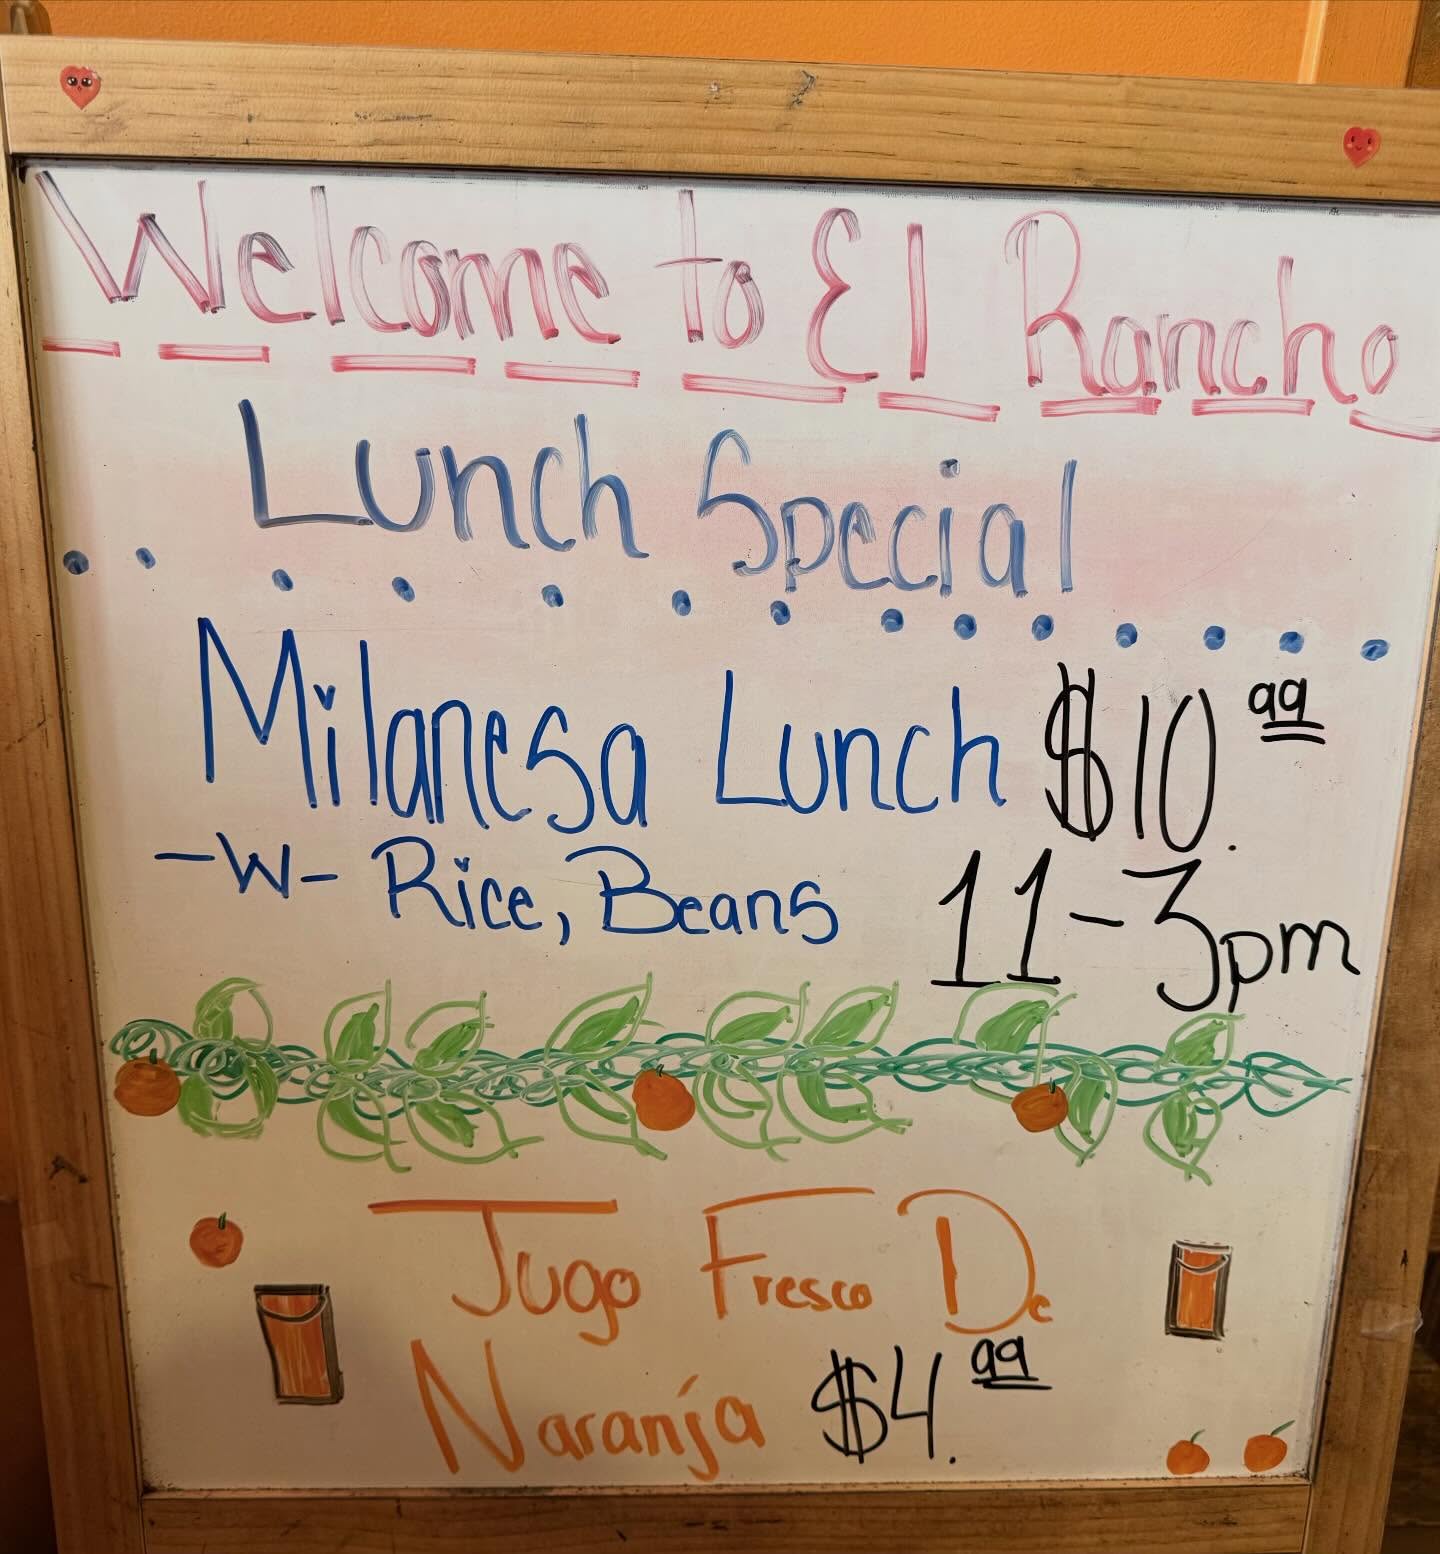 Welcome to El Rancho
Lunch Special
Milanesa Lunch $10.99
-W- Rice, Beans 11-3pm
Jugo Fresco De
Naranja $4.99